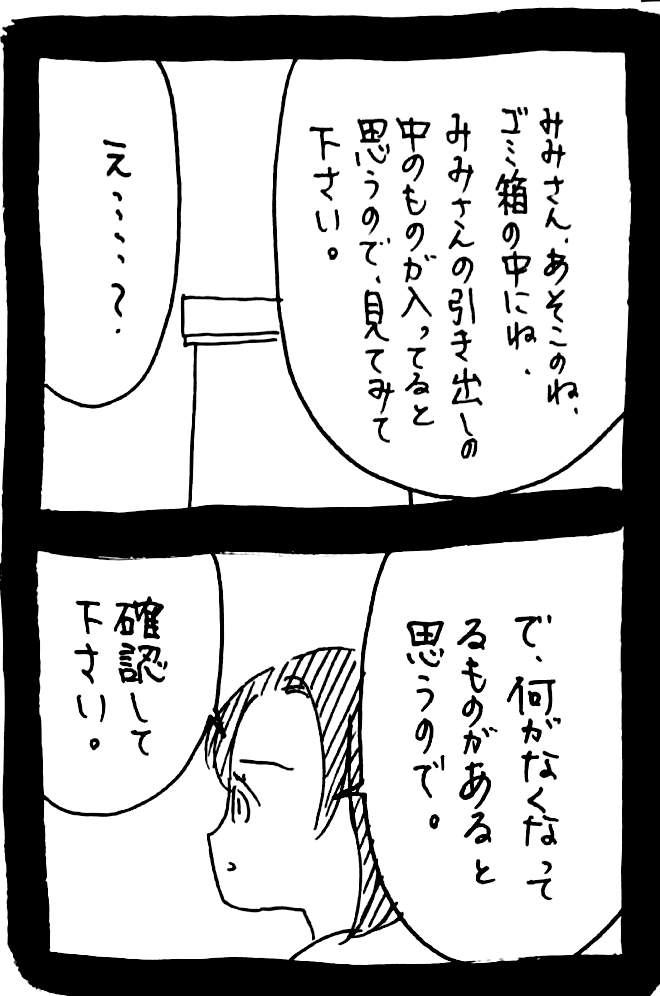 みみさん、あそこのね、
ゴミ箱の中にね、
みみさんの引き出しの
中のものが入ってると
思うので、見てみて
下さい。
え、、、、?
で、何がなくなって
るものがあると
思うので。
確認して
下さい。